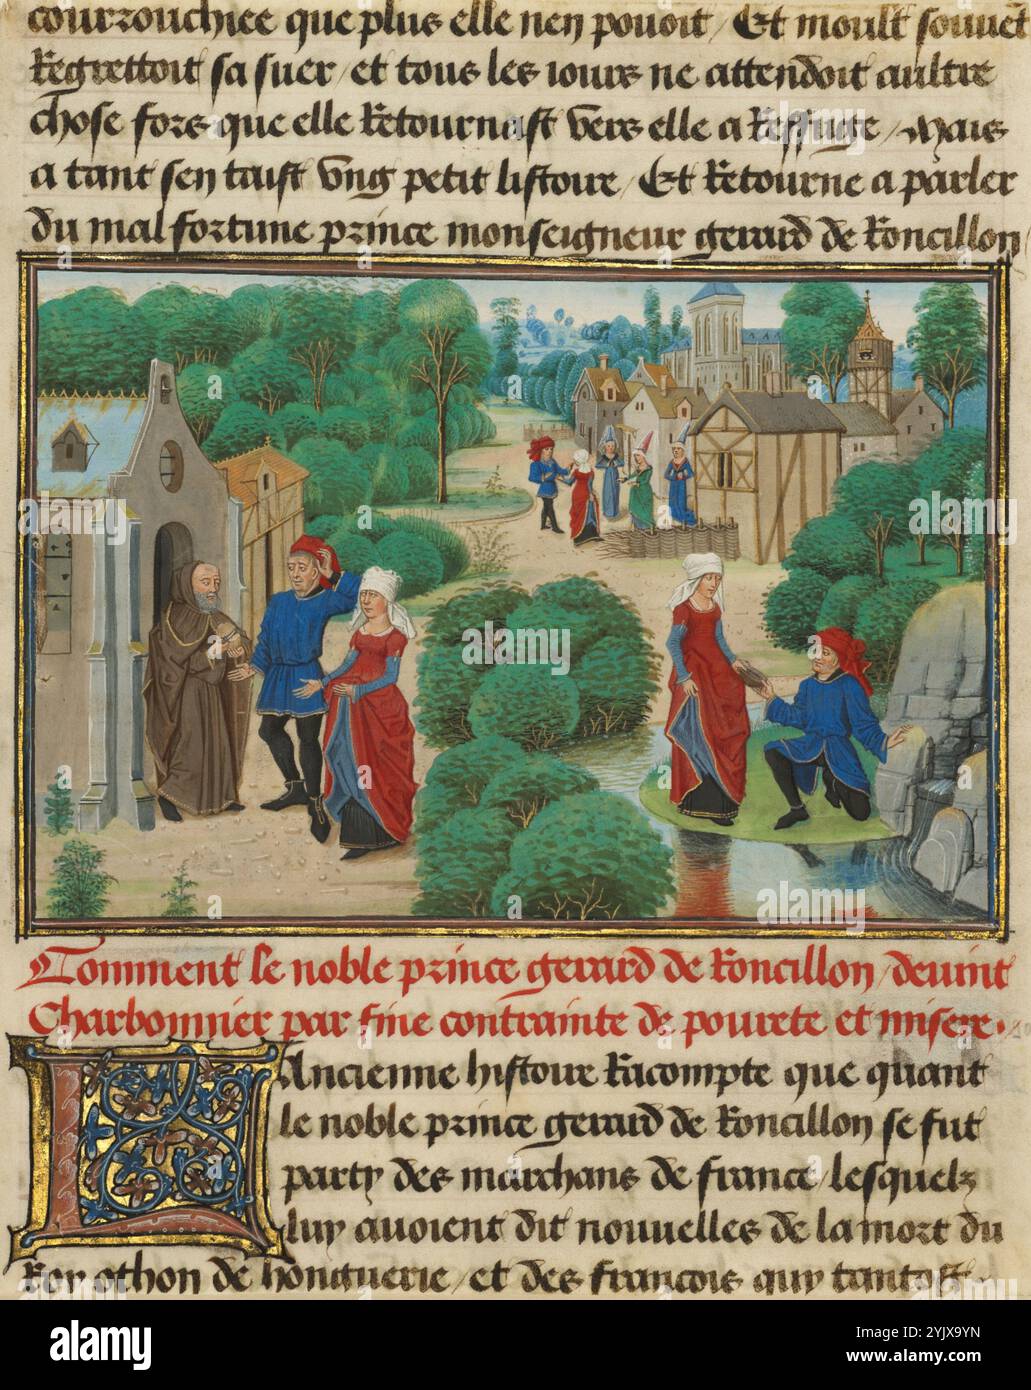 courrouchiee que plus elle nen pouoit / Et moult souuēt
Regrettoit sa suer / et tous les iours ne attendoit aultre
chose fors que elle Retournast vers elle a Reffuge / Mais
a tant sen taist vng petit listoire / Et Retourne a parler
du mal fortune prince monseigneur gerard de Roncillon /
Comment le noble prince gerard de Roncillon / deuint
Charbonnier par fine contrainte de pourete et misere .
LAncienne histoire Racompte que quant
le noble prince gerard de Roncillon se fut
party des marchans de france / lesquelz
luy auoient dit nouuelles de la mort du
Roy othon de honguerie / et des francois quy tantost
alamy
Image ID: 2YJX9YN
www.alamy.com